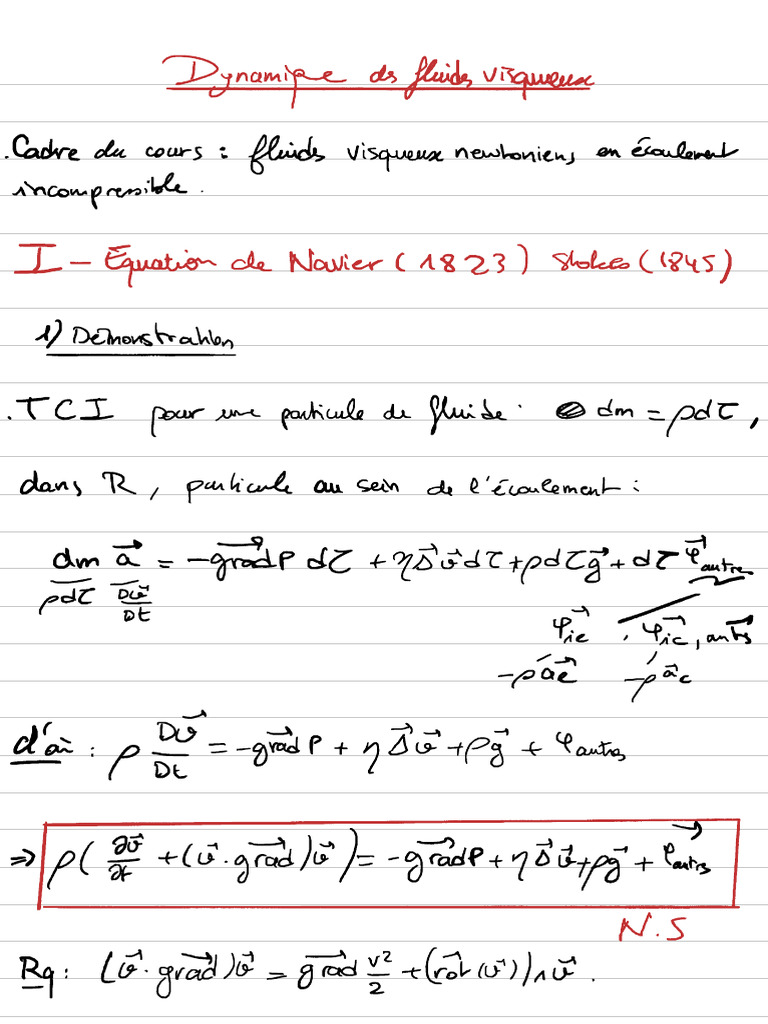 Dynamique des fluides visqueux
. Cadre du cours : fluides visqueux newtoniens, en écoulement
incompressible.
I - Équation de Navier (1823) Stokes (1845)
1) Démonstration
. TCI pour une particule de fluide : dm = ρdτ,
dans R, particule au sein de l'écoulement :
dm a⃗ = -grad⃗ P dτ + ηΔ⃗v⃗ dτ + ρdτg⃗ + dτ φ⃗autres
ρdτ Dv⃗/Dt
φ⃗ie , φ⃗ic, autres
-ρa⃗e -ρa⃗c
d'où : ρ Dv⃗/Dt = -grad⃗ P + ηΔ⃗v⃗ + ρg⃗ + φautres
⇒ ρ(∂v⃗/∂t + (v⃗ · grad⃗)v⃗) = -grad⃗ P + ηΔ⃗v⃗ + ρg⃗ + φ⃗autres
N.S
Rq : (v⃗ · grad⃗)v⃗ = grad⃗ v²/2 + (rot⃗(v⃗)) ∧ v⃗.